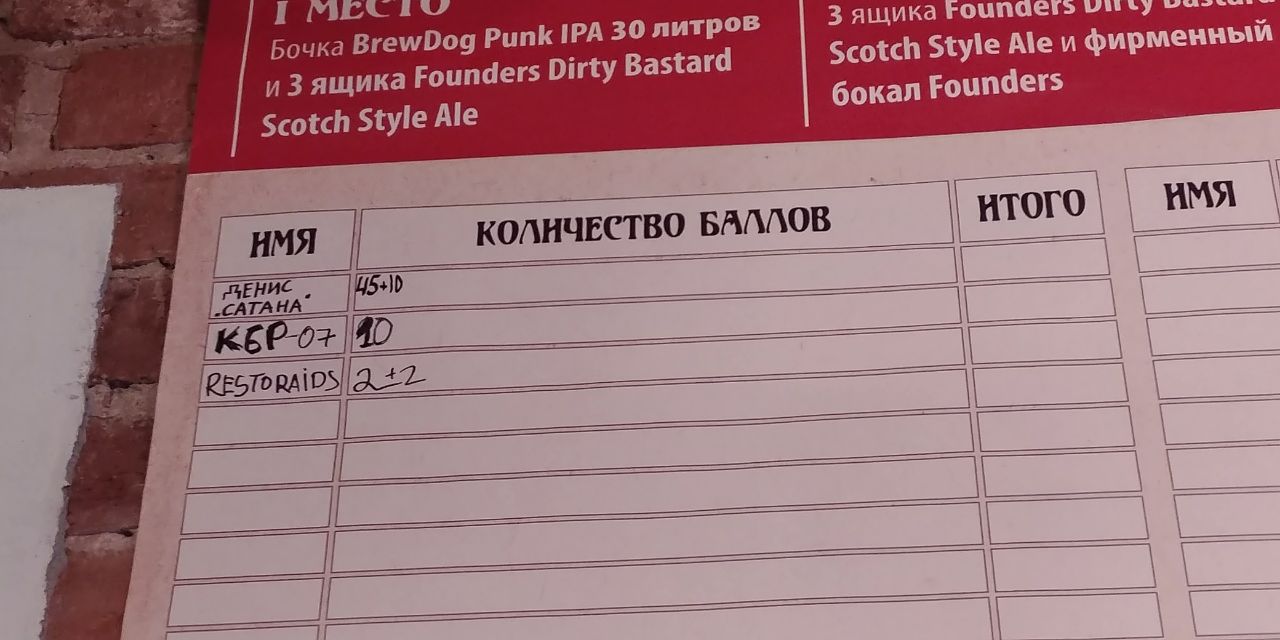 I МЕСТО
Бочка BrewDog Punk IPA 30 литров
и 3 ящика Founders Dirty Bastard
Scotch Style Ale
3 ящика Founders Dirty Bastard
Scotch Style Ale и фирменный
бокал Founders
ИМЯ КОЛИЧЕСТВО БАЛЛОВ ИТОГО ИМЯ
ДЕНИС
"САТАНА" 45+10
КБР-07 10
RESTORAIDS 2+2